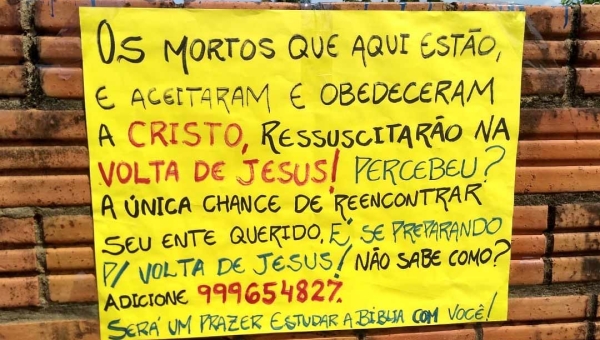 OS MORTOS QUE AQUI ESTÃO,
E ACEITARAM E OBEDECERAM
A CRISTO, RESSUSCITARÃO NA
VOLTA DE JESUS! PERCEBEU?
A ÚNICA CHANCE DE REENCONTRAR
SEU ENTE QUERIDO, É SE PREPARANDO
P/ VOLTA DE JESUS! NÃO SABE COMO?
ADICIONE 999654827.
SERÁ UM PRAZER ESTUDAR A BÍBLIA COM VOCÊ!